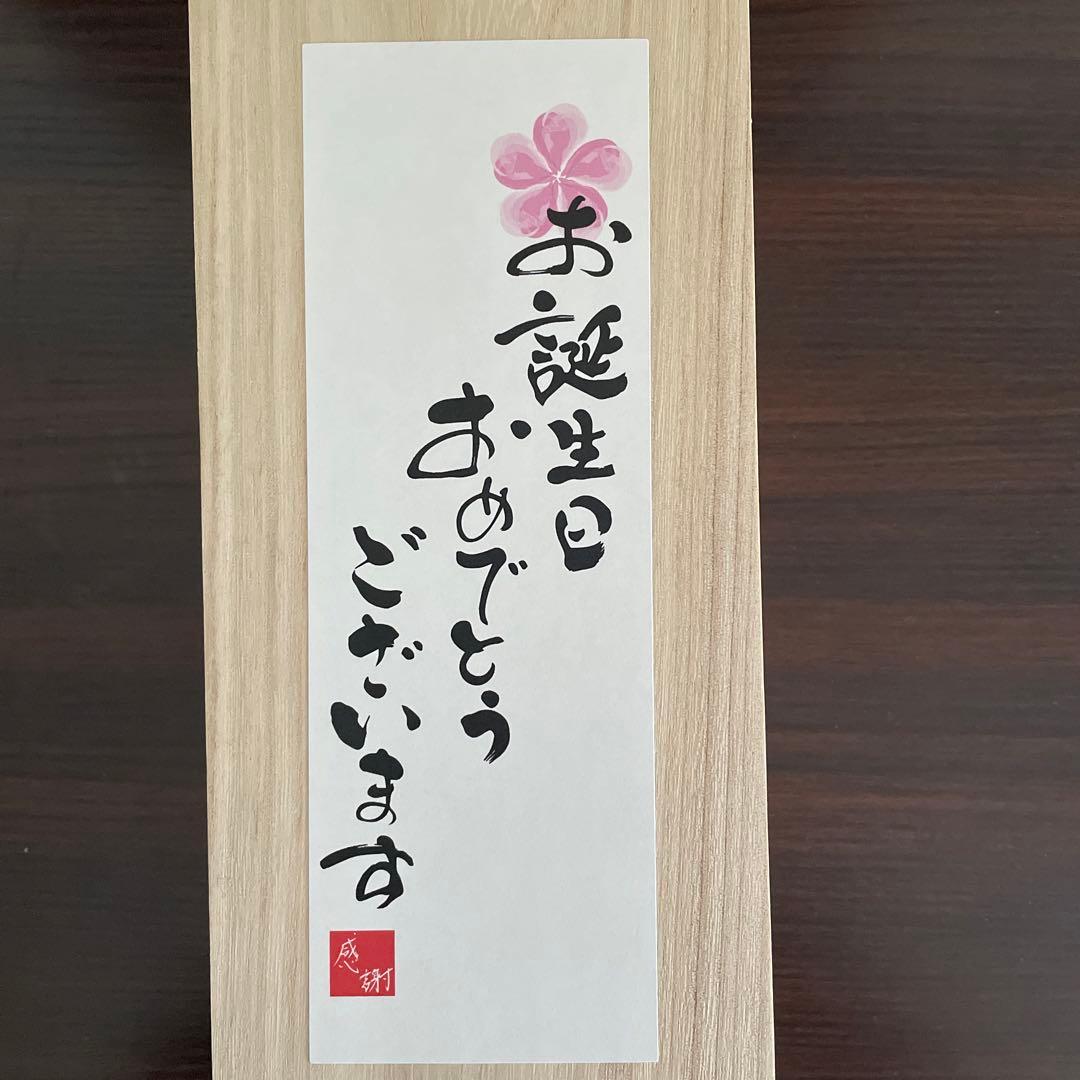 お誕生日
おめでとう
ございます
感謝